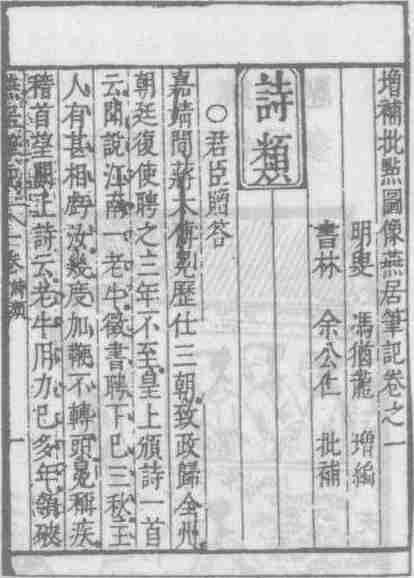 增補批點圖像燕居筆記卷之一
明叟 馮猶龍 增編
書林 余公仁 批補
詩類
○君臣贈答
嘉靖間蔣太傅冕歷仕三朝致政歸全州
朝廷復使聘之三年不至皇上頒詩一首
云聞說江南一老牛徵書聘下已三秋主
人有甚相虧汝幾度加鞭不轉頭冕稱疾
稽首望闕上詩云老牛用力已多年領破
詩類 一